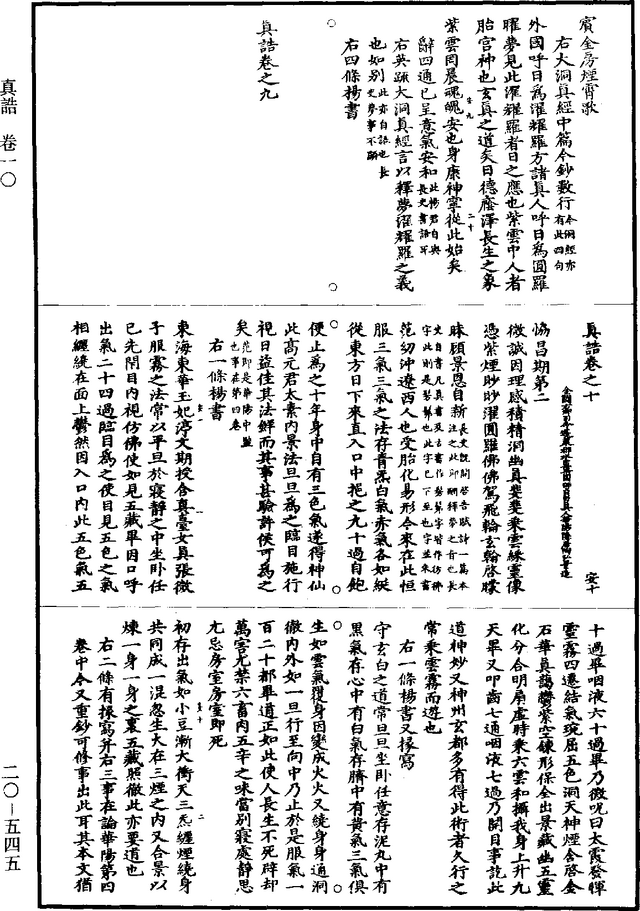 真誥 卷一〇
二〇－五四五
賓金房煙霄歌
右大洞真經中篇今鈔數行今洞經亦有此四句
外國呼日為濯耀羅方諸真人呼日為圓羅
曜夢見此濯耀羅者日之應也紫雲中人者
胎宮神也玄真之道矣日德廕澤長生之象
紫雲罔晨魂魄安也身康神寧從此始矣
辭四通已呈意氣安和此楊君自與長史書語耳
右英疏大洞真經言以釋夢濯耀羅之義
也如別此亦自語也長史夢事不顯
右四條楊書
真誥卷之九
真誥卷之十
安十
協昌期第二
微誠因理感積精洞幽真斐斐乘雲綵靈像
憑紫煙眇眇濯圓羅佛佛駕飛輪玄翰啓矇
昧願景恩自新
範幼沖遼西人也受胎化易形今來在此恒
服三氣三氣之法存青氣白氣赤氣各如綖
從東方日下來直入口中挹之九十過自飽
便止為之十年身中自有三色氣遂得神仙
此高元君太素內景法旦旦為之臨目施行
視日益佳其法鮮而其事甚驗許侯可為之
矣范即是華陽中監也事在第四卷
右一條楊書
東海東華玉妃淳文期授含真臺女真張微
子服霧之法常以平旦於寢靜之中坐卧任
已先閉目內視仿佛使如見五藏畢因口呼
出氣二十四過臨目為之使目見五色之氣
相纏繞在面上鬱然因入口內此五色氣五
十過畢咽液六十過畢乃微呪曰太霞發暉
靈霧四遷結氣琬屈五色洞天神煙含啓金
石華真藹鬱紫空鍊形保全出景藏幽五靈
化分合明扇虛時乘六雲和攝我身上升九
天畢又叩齒七通咽液七過乃開目事訖此
道神妙又神州玄都多有得此術者久行之
常乘雲霧而遊也
右一條楊書又掾寫
守玄白之道常旦旦坐卧任意存泥丸中有
黑氣存心中有白氣存臍中有黃氣三氣俱
生如雲氣覆身因變成火火又繞身身通洞
徹內外如一旦行至向中乃止於是服氣一
百二十都畢道正如此使人長生不死辟却
萬害尤禁六畜肉五辛之味當別寢處靜思
尤忌房室房室即死
初存出氣如小豆漸大衝天三炁纏煙繞身
共同成一混忽生大在三煙之內又合景以
煉一身一身之裏五藏照徹此亦要道也
右二條有掾寫并右三事在論華陽第四
卷中今又重鈔可修事出此耳其本文猶